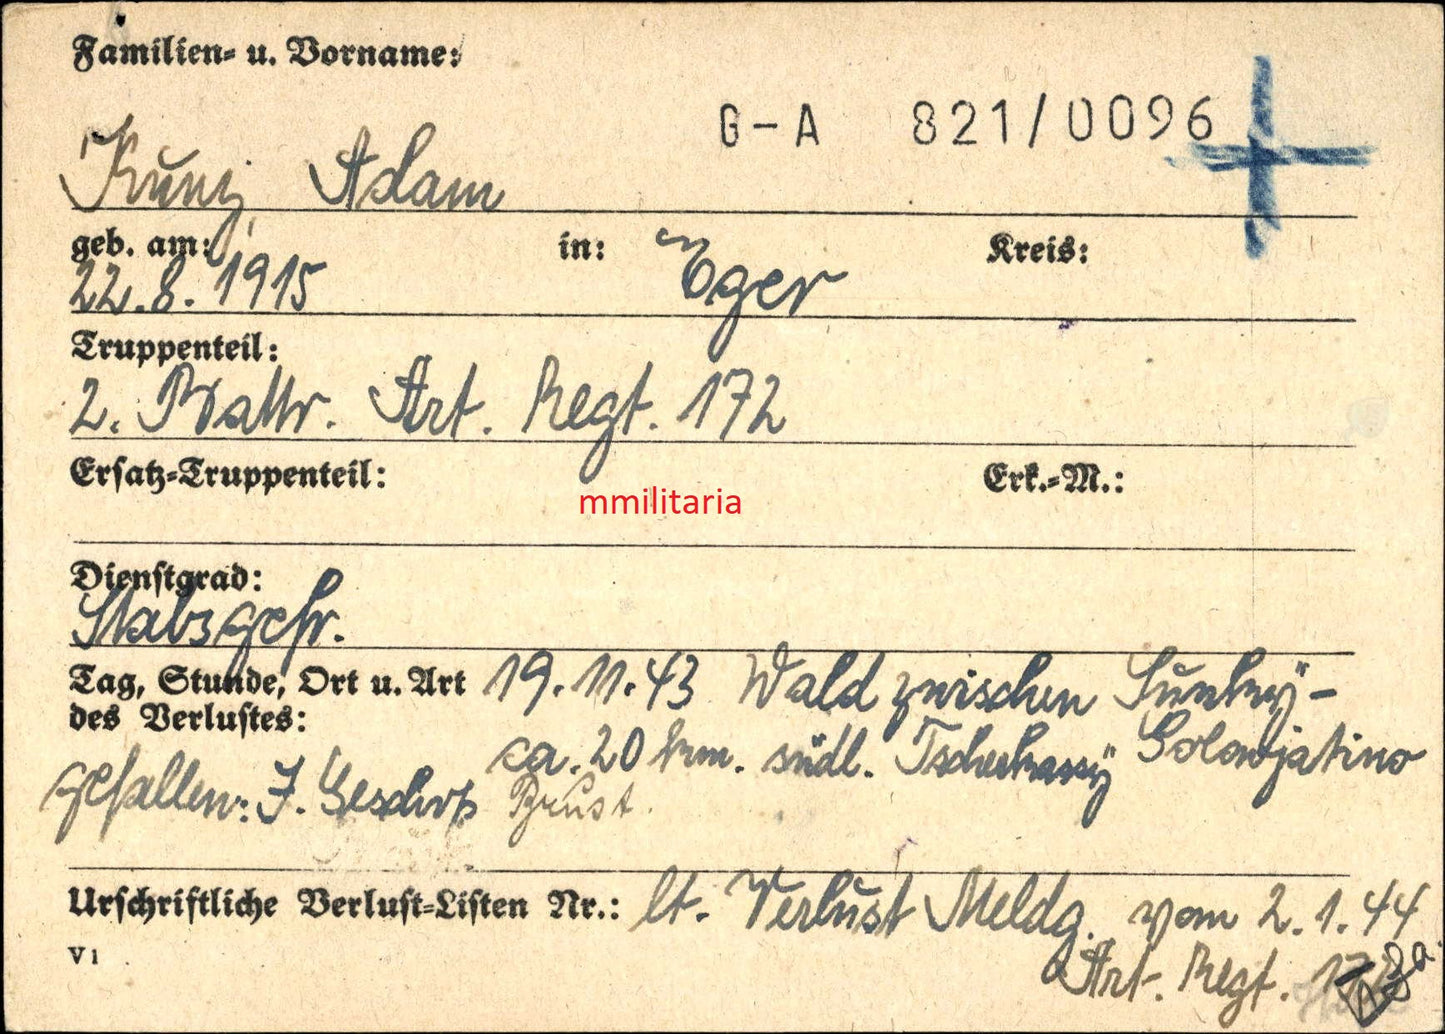 Familien- u. Vorname:
G-A 821/0096
Kunz Adam
geb. am: in: Eger Kreis:
22.8.1915
Truppenteil:
2. Battr. Art. Regt. 172
Ersatz-Truppenteil: Erk.-M.:
mmilitaria
Dienstgrad:
Stabsgefr.
Tag, Stunde, Ort u. Art 19.11.43 Wald zwischen Sunky-
des Verlustes: ca. 20 km. südl. Tscherkassy Golowjatino
gefallen: J. Geschoß Brust.
Urschriftliche Verlust-Listen Nr.: lt. Verlust Meldg. vom 2.1.44
V1
Art. Regt.